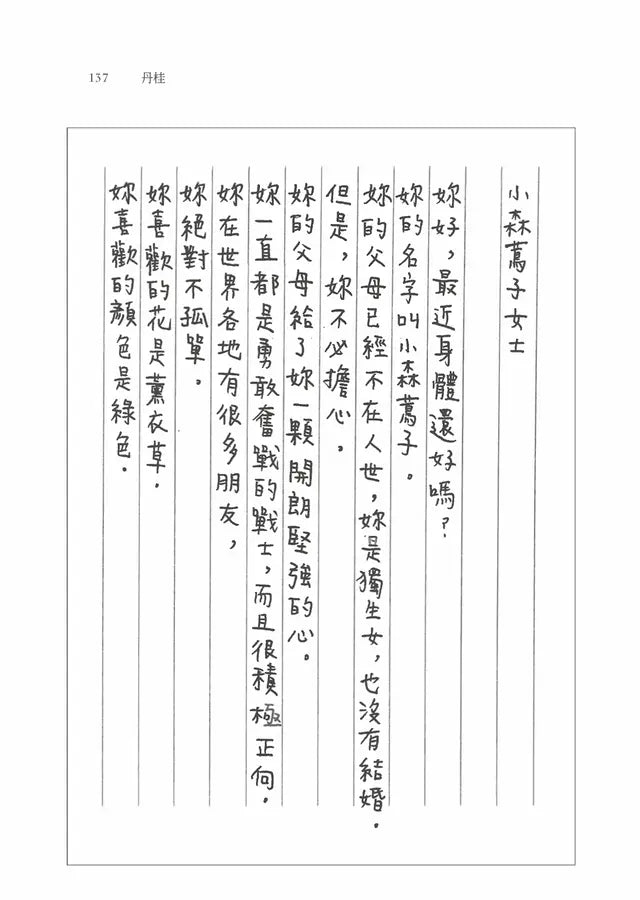 137 丹桂
小森蔦子女士
妳好，最近身體還好嗎？
妳的名字叫小森蔦子。
妳的父母已經不在人世，妳是獨生女，也沒有結婚。
但是，妳不必擔心。
妳的父母給了妳一顆開朗堅強的心。
妳一直都是勇敢奮戰的戰士，而且很積極正向。
妳在世界各地有很多朋友，
妳絕對不孤單。
妳喜歡的花是薰衣草。
妳喜歡的顏色是綠色。